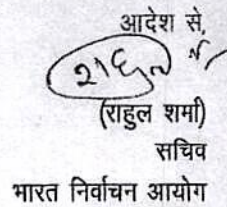 आदेश से,
(राहुल शर्मा)
सचिव
भारत निर्वाचन आयोग